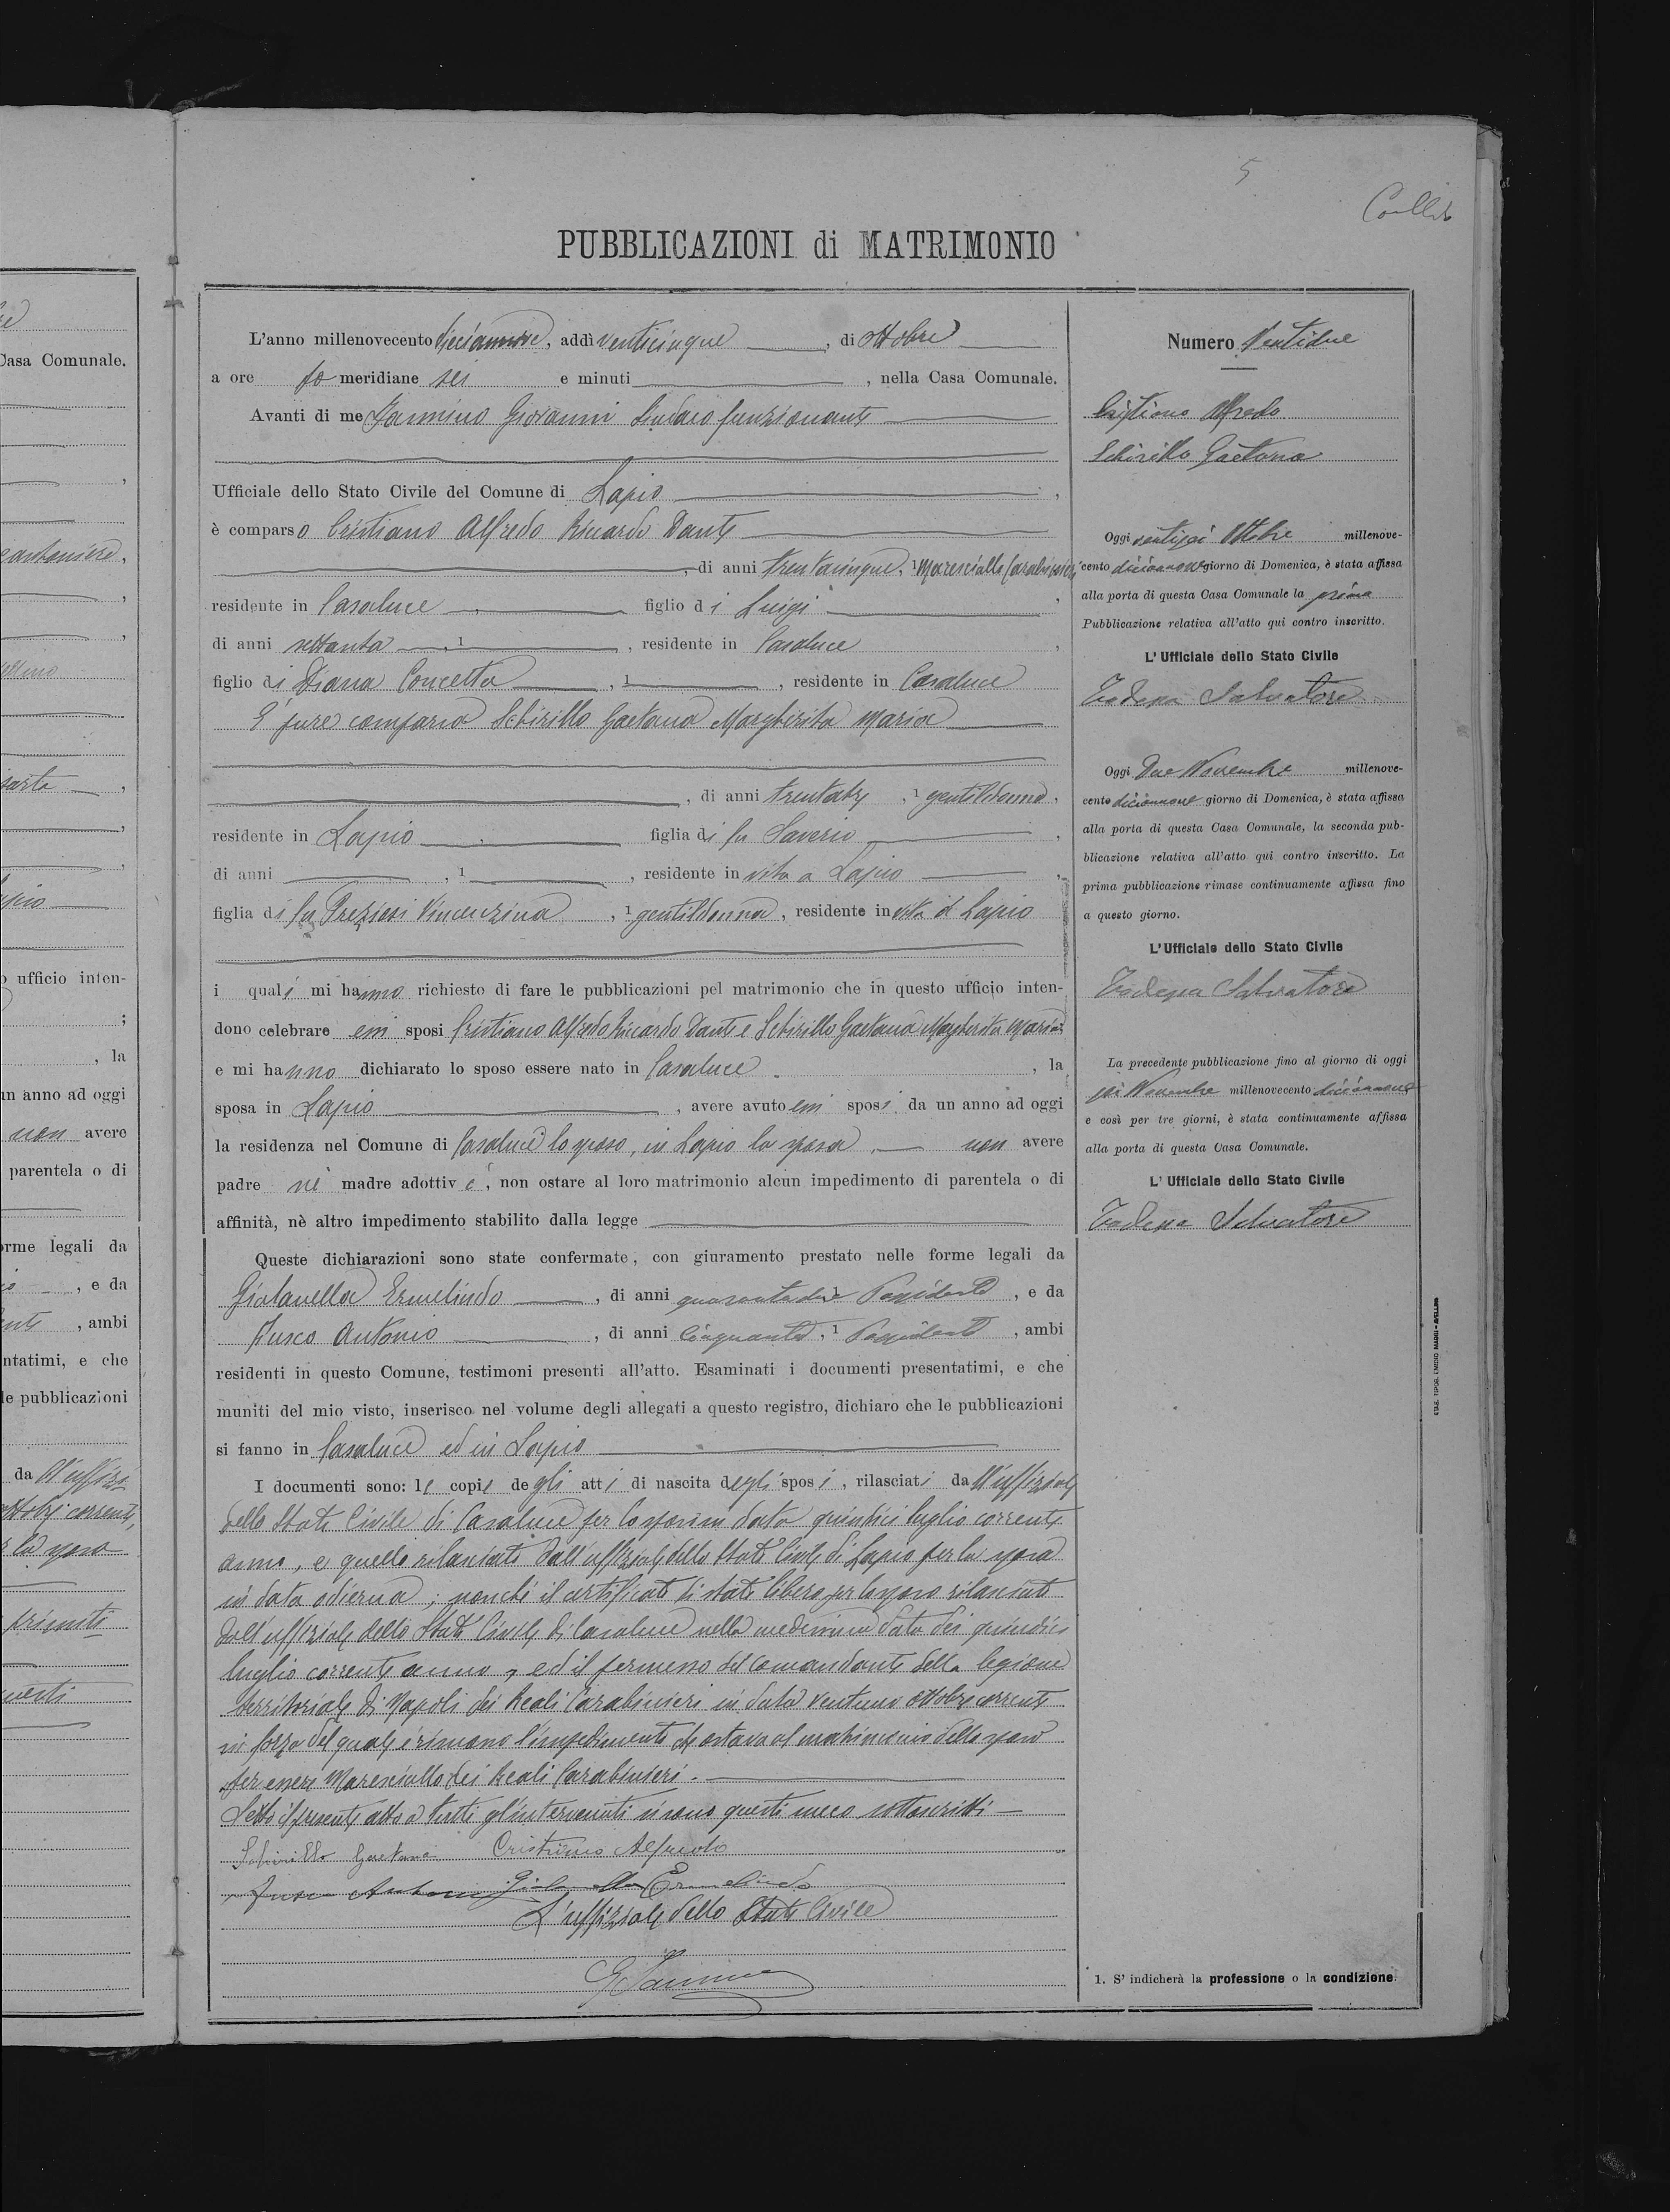 5
PUBBLICAZIONI di MATRIMONIO
re
Casa Comunale.
cantoniere,
sarta
o ufficio inten-
;
, la
un anno ad oggi
non avere
parentela o di
orme legali da
, e da
, ambi
ntatimi, e che
le pubblicazioni
da ll'uffizi
ottobre corrente,
la sposa
L'anno millenovecento diciannove, addì venticinque, di ottobre
a ore po meridiane sei e minuti , nella Casa Comunale.
Avanti di me Iannino Giovanni Sindaco funzionante
Ufficiale dello Stato Civile del Comune di Lapio,
è comparso Cristiano Alfredo Riccardo Dante
, di anni trentacinque, 1 Maresciallo Carabinieri,
residente in Casaluce figlio di Luigi,
di anni settanta, 1 , residente in Casaluce,
figlio di Diana Concetta, 1 , residente in Casaluce
E' pure comparsa Schirillo Gaetana Margherita Maria
, di anni trentatre, 1 gentildonna,
residente in Lapio figlia di fu Saverio,
di anni , 1 , residente in vita a Lapio,
figlia di fu Preziosi Vincenzina, 1 gentildonna, residente in vita a Lapio
i quali mi hanno richiesto di fare le pubblicazioni pel matrimonio che in questo ufficio inten-
dono celebrare essi sposi Cristiano Alfredo Riccardo Dante e Schirillo Gaetana Margherita Maria
e mi hanno dichiarato lo sposo essere nato in Casaluce, la
sposa in Lapio, avere avuto essi sposi da un anno ad oggi
la residenza nel Comune di Casaluce lo sposo, in Lapio la sposa, non avere
padre nè madre adottivi, non ostare al loro matrimonio alcun impedimento di parentela o di
affinità, nè altro impedimento stabilito dalla legge
Queste dichiarazioni sono state confermate, con giuramento prestato nelle forme legali da
Giolanella Ermelindo, di anni quarantadue 1 Possidente, e da
Fusco Antonio, di anni Cinquanta, 1 Possidente, ambi
residenti in questo Comune, testimoni presenti all'atto. Esaminati i documenti presentatimi, e che
muniti del mio visto, inserisco nel volume degli allegati a questo registro, dichiaro che le pubblicazioni
si fanno in Casaluce ed in Lapio
I documenti sono: le copie degli atti di nascita degli sposi, rilasciati dall'uffiziale
dello Stato Civile di Casaluce per lo sposo in data quindici luglio corrente
anno, e quello rilasciato dall'uffiziale dello Stato Civile di Lapio per la sposa
in data odierna; nonchè il certificato di stato libero per lo sposo rilasciato
dall'uffiziale dello Stato Civile di Casaluce nella medesima data dei quindici
luglio corrente anno, ed il permesso del Comandante della legione
territoriale di Napoli dei Reali Carabinieri in data ventuno ottobre corrente
in forza del quale è rimosso l'impedimento che ostava al matrimonio dello sposo
per essere Maresciallo dei Reali Carabinieri.
Letto il presente atto a tutti gl'intervenuti si sono questi meco sottoscritti
Schirillo Gaetana Cristiano Alfredo
Fusco Antonio Giolanella Ermelindo
L'uffiziale dello Stato Civile
G Iannino
Numero Ventidue
Cristiano Alfredo
Schirillo Gaetana
Oggi ventisei Ottobre millenove-
cento diciannove giorno di Domenica, è stata affissa
alla porta di questa Casa Comunale la prima
Pubblicazione relativa all'atto qui contro inscritto.
L'Ufficiale dello Stato Civile
Salvatore
Oggi Due Novembre millenove-
cento diciannove giorno di Domenica, è stata affissa
alla porta di questa Casa Comunale, la seconda pub-
blicazione relativa all'atto qui contro inscritto. La
prima pubblicazione rimase continuamente affissa fino
a questo giorno.
L'Ufficiale dello Stato Civile
Salvatore
La precedente pubblicazione fino al giorno di oggi
sei Novembre millenovecento diciannove
e così per tre giorni, è stata continuamente affissa
alla porta di questa Casa Comunale.
L'Ufficiale dello Stato Civile
Salvatore
1. S' indicherà la professione o la condizione.